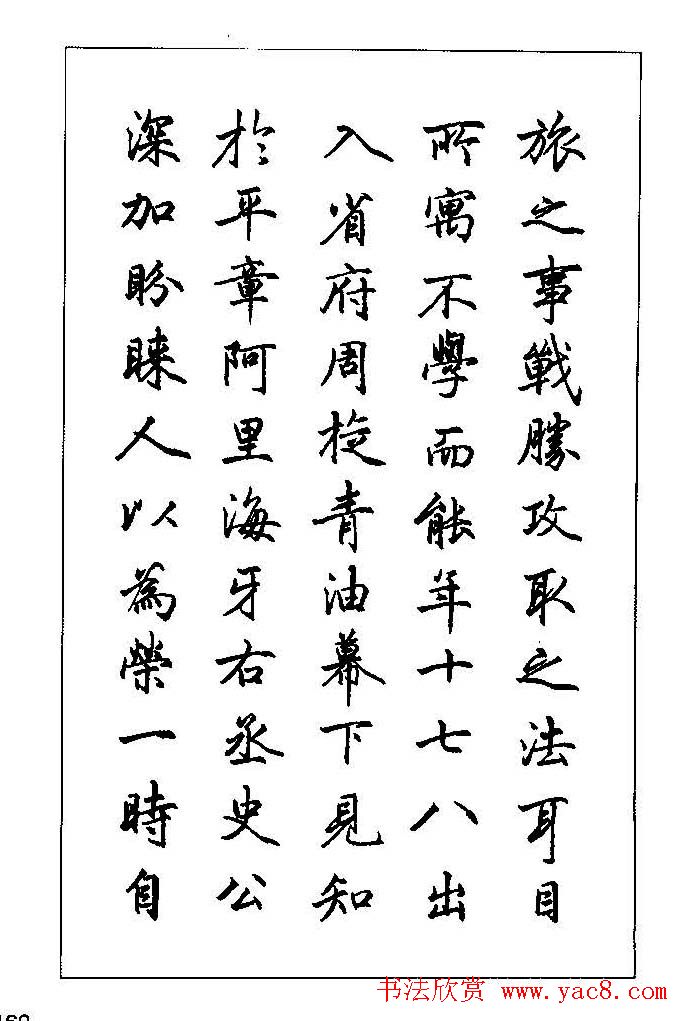 旅之事戰勝攻取之法耳目
所寓不學而能年十七八出
入省府周旋青油幕下見知
於平章阿里海牙右丞史公
深加盼睞人以為榮一時自
书法欣赏 www.yac8.com